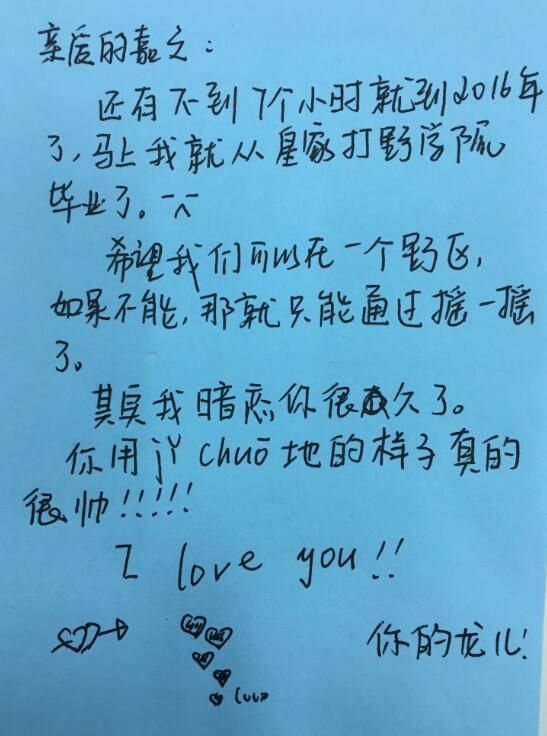 亲爱的嘉之：
还有不到7个小时就到2016年
了，马上我就从皇家打野学院
毕业了。
希望我们可以在一个野区，
如果不能，那就只能通过摇一摇
了。
其实我暗恋你很久了。
你用丫chuō地的样子真的
很帅！！！！！
I love you!!
你的龙儿！